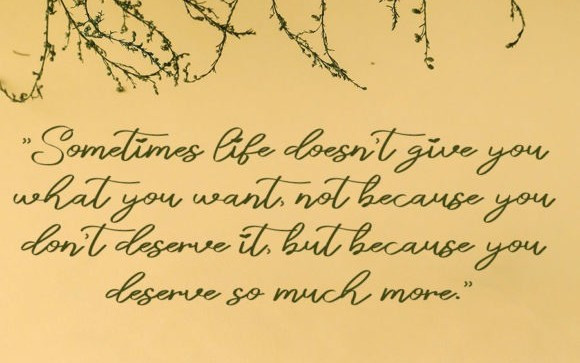 "Sometimes life doesn't give you
what you want, not because you
don't deserve it, but because you
deserve so much more."